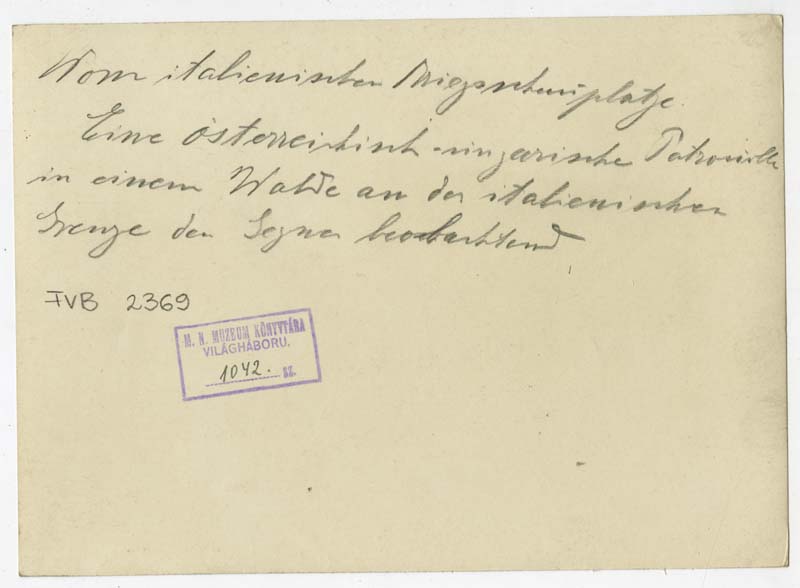 Vom italienischen Kriegsschauplatze.
Eine österreichisch-ungarische Patrouille
in einem Walde an der italienischen
Grenze den Gegner beobachtend.
FVB 2369
M. N. MUZEUM KÖNYVTÁRA
VILÁGHÁBORU.
1042. SZ.